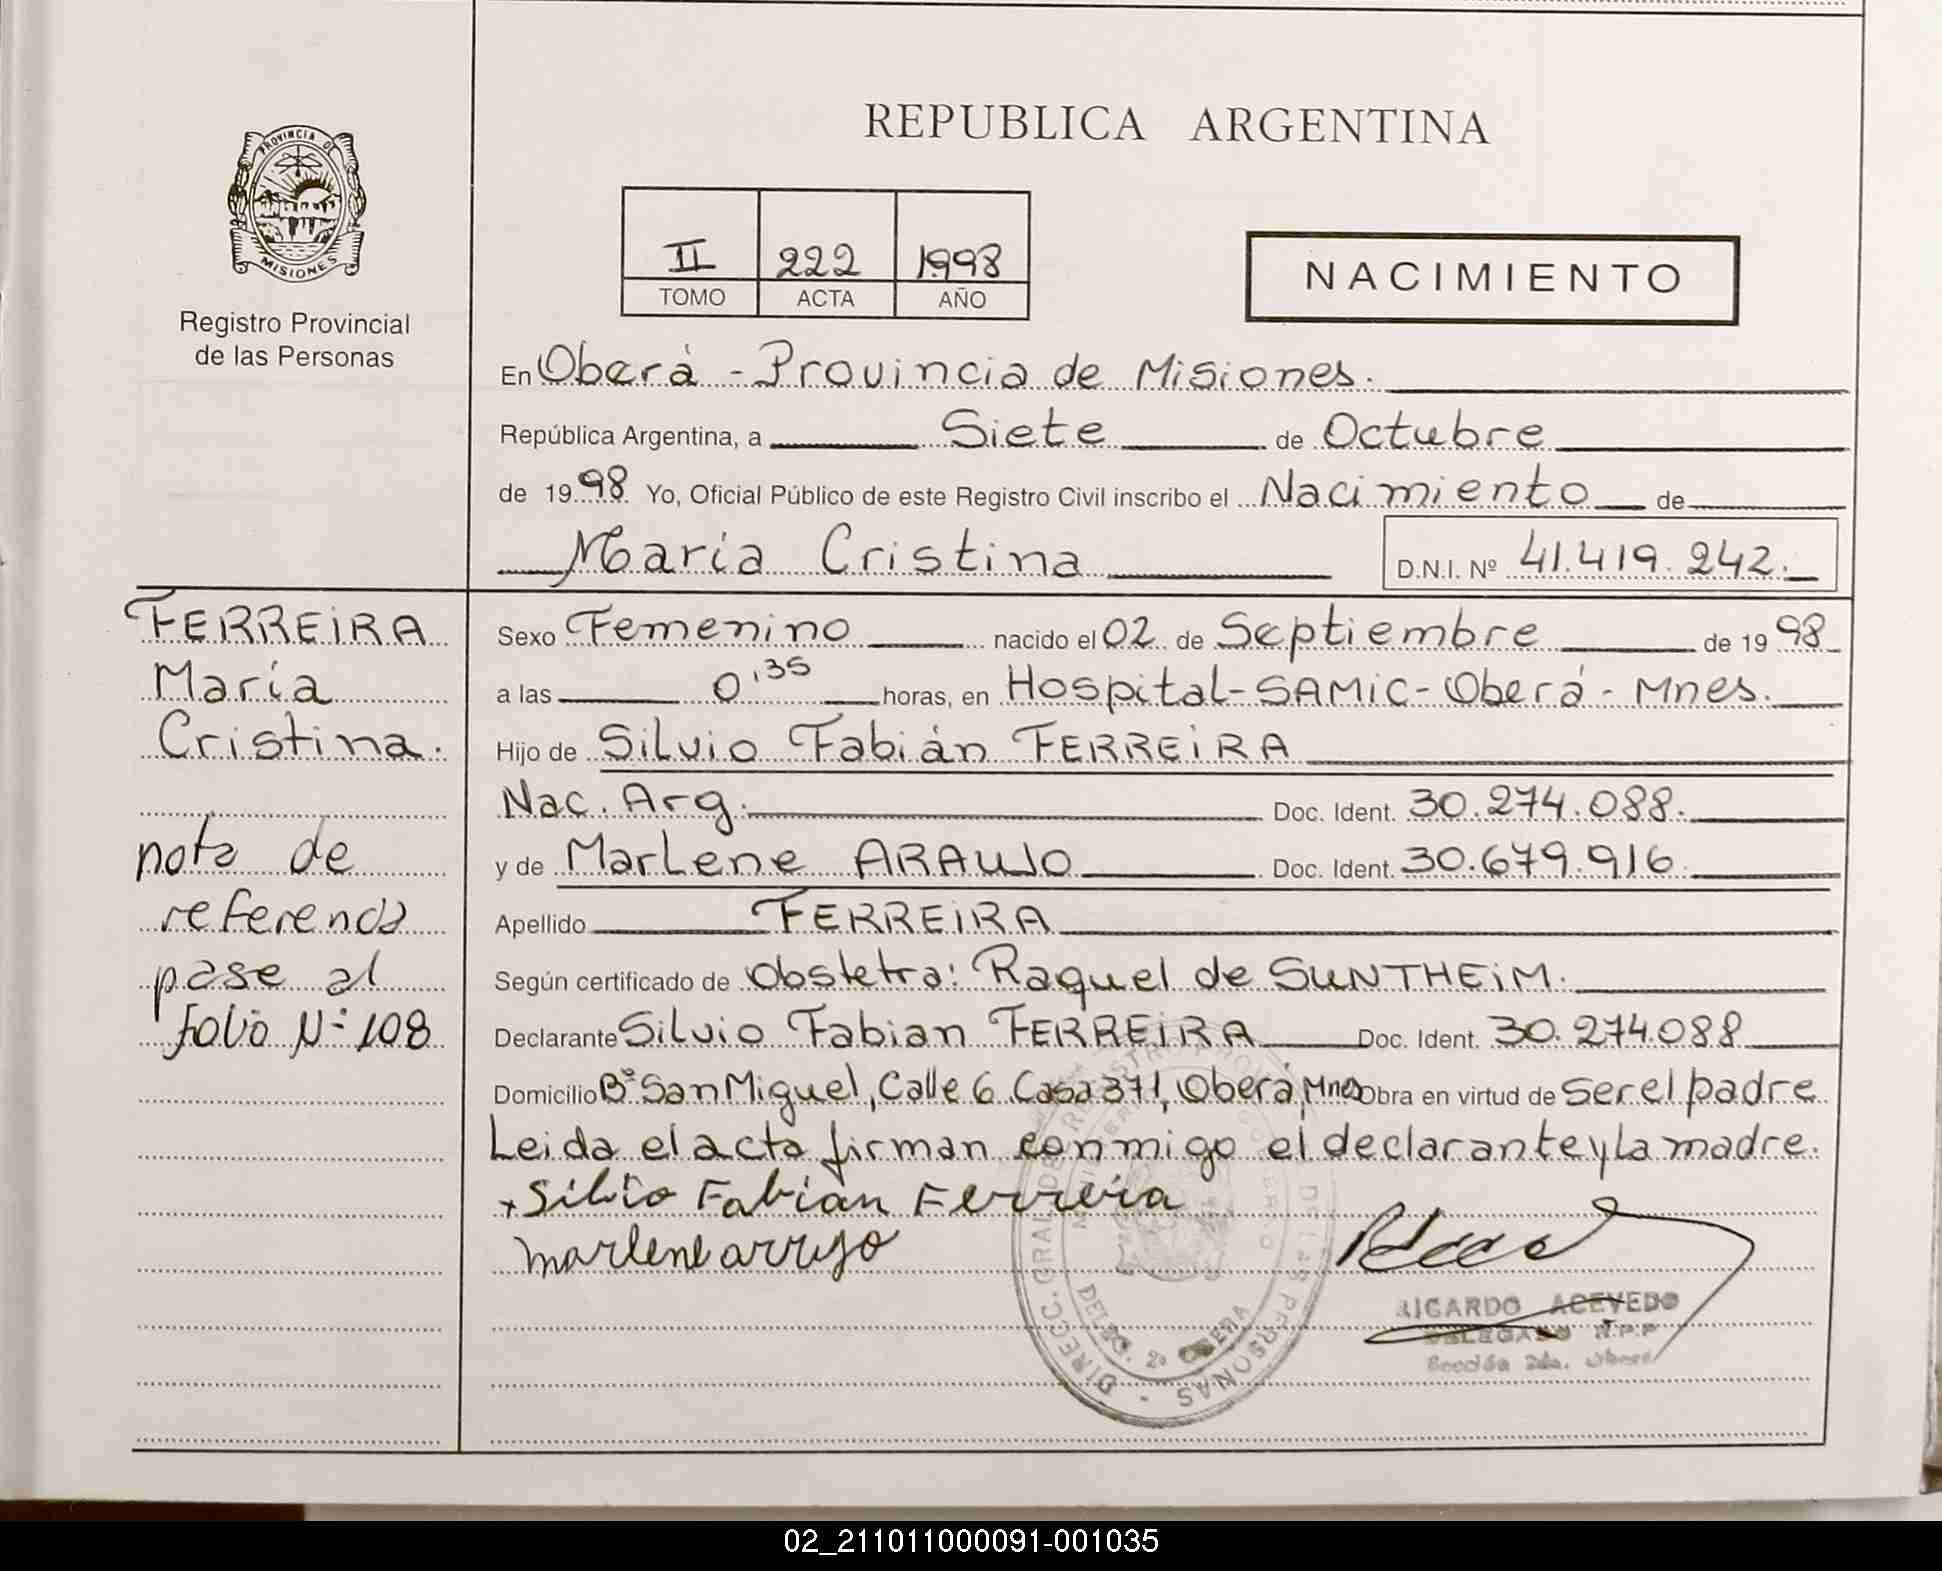 REPUBLICA ARGENTINA
PROVINCIA DE
MISIONES
Registro Provincial
de las Personas
II 222 1998
TOMO ACTA AÑO
NACIMIENTO
En Oberá - Provincia de Misiones.
República Argentina, a Siete de Octubre
de 1998 Yo, Oficial Público de este Registro Civil inscribo el Nacimiento de
María Cristina D.N.I. Nº 41.419.242.
FERREIRA
María
Cristina.
nota de
referencia
pase al
folio Nº 108
Sexo Femenino nacido el 02 de Septiembre de 1998
a las 0,35 horas, en Hospital-SAMIC-Oberá-Mnes.
Hijo de Silvio Fabián FERREIRA
Nac. Arg. Doc. Ident. 30.274.088.
y de Marlene ARAUJO Doc. Ident. 30.679.916.
Apellido FERREIRA
Según certificado de Obstetra: Raquel de SUNTHEIM.
Declarante Silvio Fabian FERREIRA Doc. Ident. 30.274.088
Domicilio Bº San Miguel, Calle 6 Casa 371, Oberá, Mnes Obra en virtud de ser el padre
Leida el acta firman conmigo el declarante y la madre.
Silvio Fabian Ferreira
marlene
RICARDO ACEVEDO
DELEGADO R.P.P
Sección 2da. Oberá
DIRECC. GRAL. DE REGISTRO PROV. DE LAS PERSONAS
DELEG. 2º OBERA
02_211011000091-001035